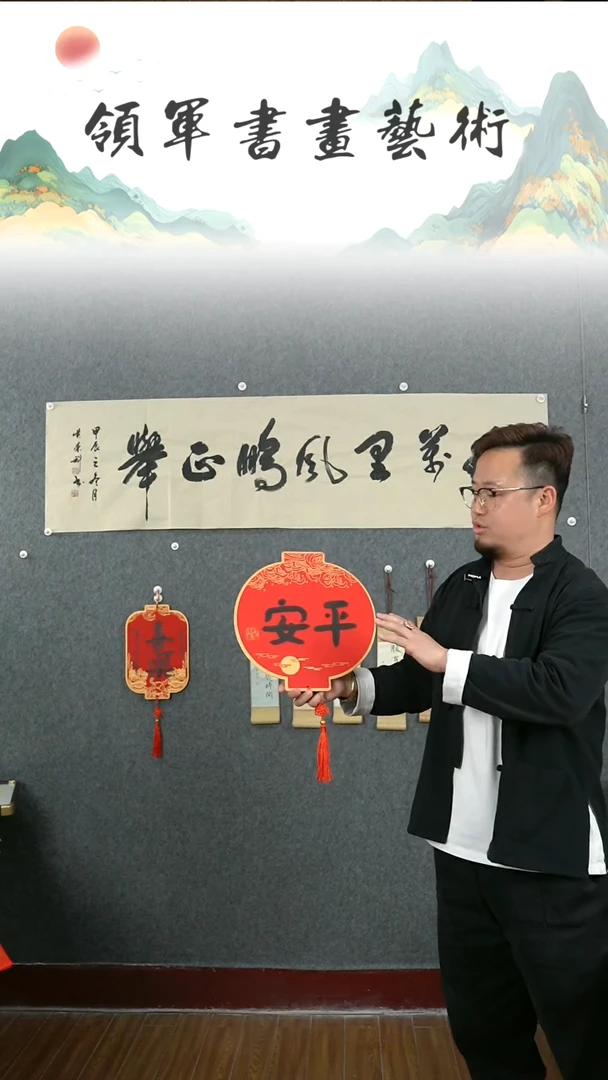 領軍書畫藝術
萬里風鵬正舉
甲辰之冬月
平安